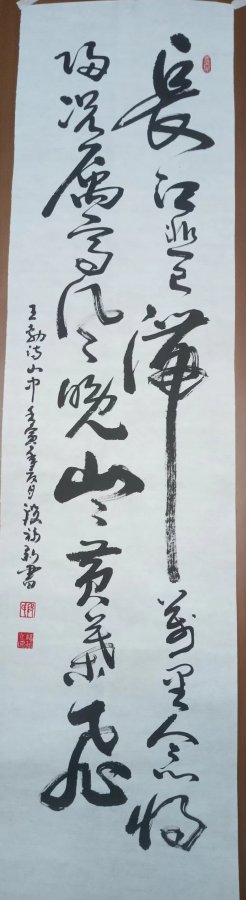 長江悲已滯萬里念將
歸況屬高風晚山山黃葉飛
王勃詩山中壬寅年
書